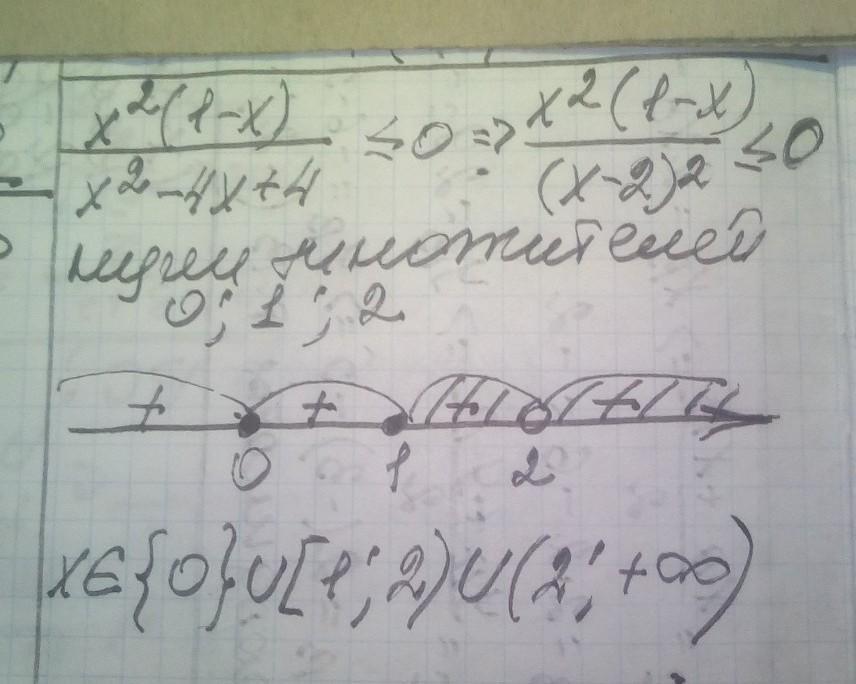 x²(1-x)/(x²-4x+4) ≤ 0 => x²(1-x)/(x-2)² ≤ 0
нули множителей
0; 1; 2
+ + + +
0 1 2
x∈{0}∪[1;2)∪(2;+∞)